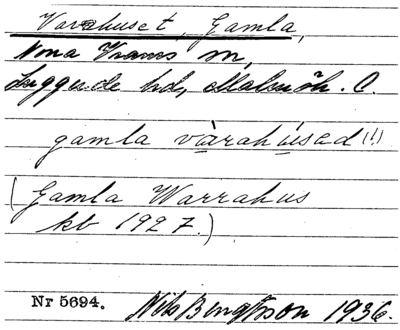 Varahuset, Gamla,
Norra Vrams sn,
Luggude hd, Malmöh. C.
gamla vàrahúsad (!)
(Gamla Warrahus
kb 1927.)
Nr 5694. Nils Bengtsson 1936.